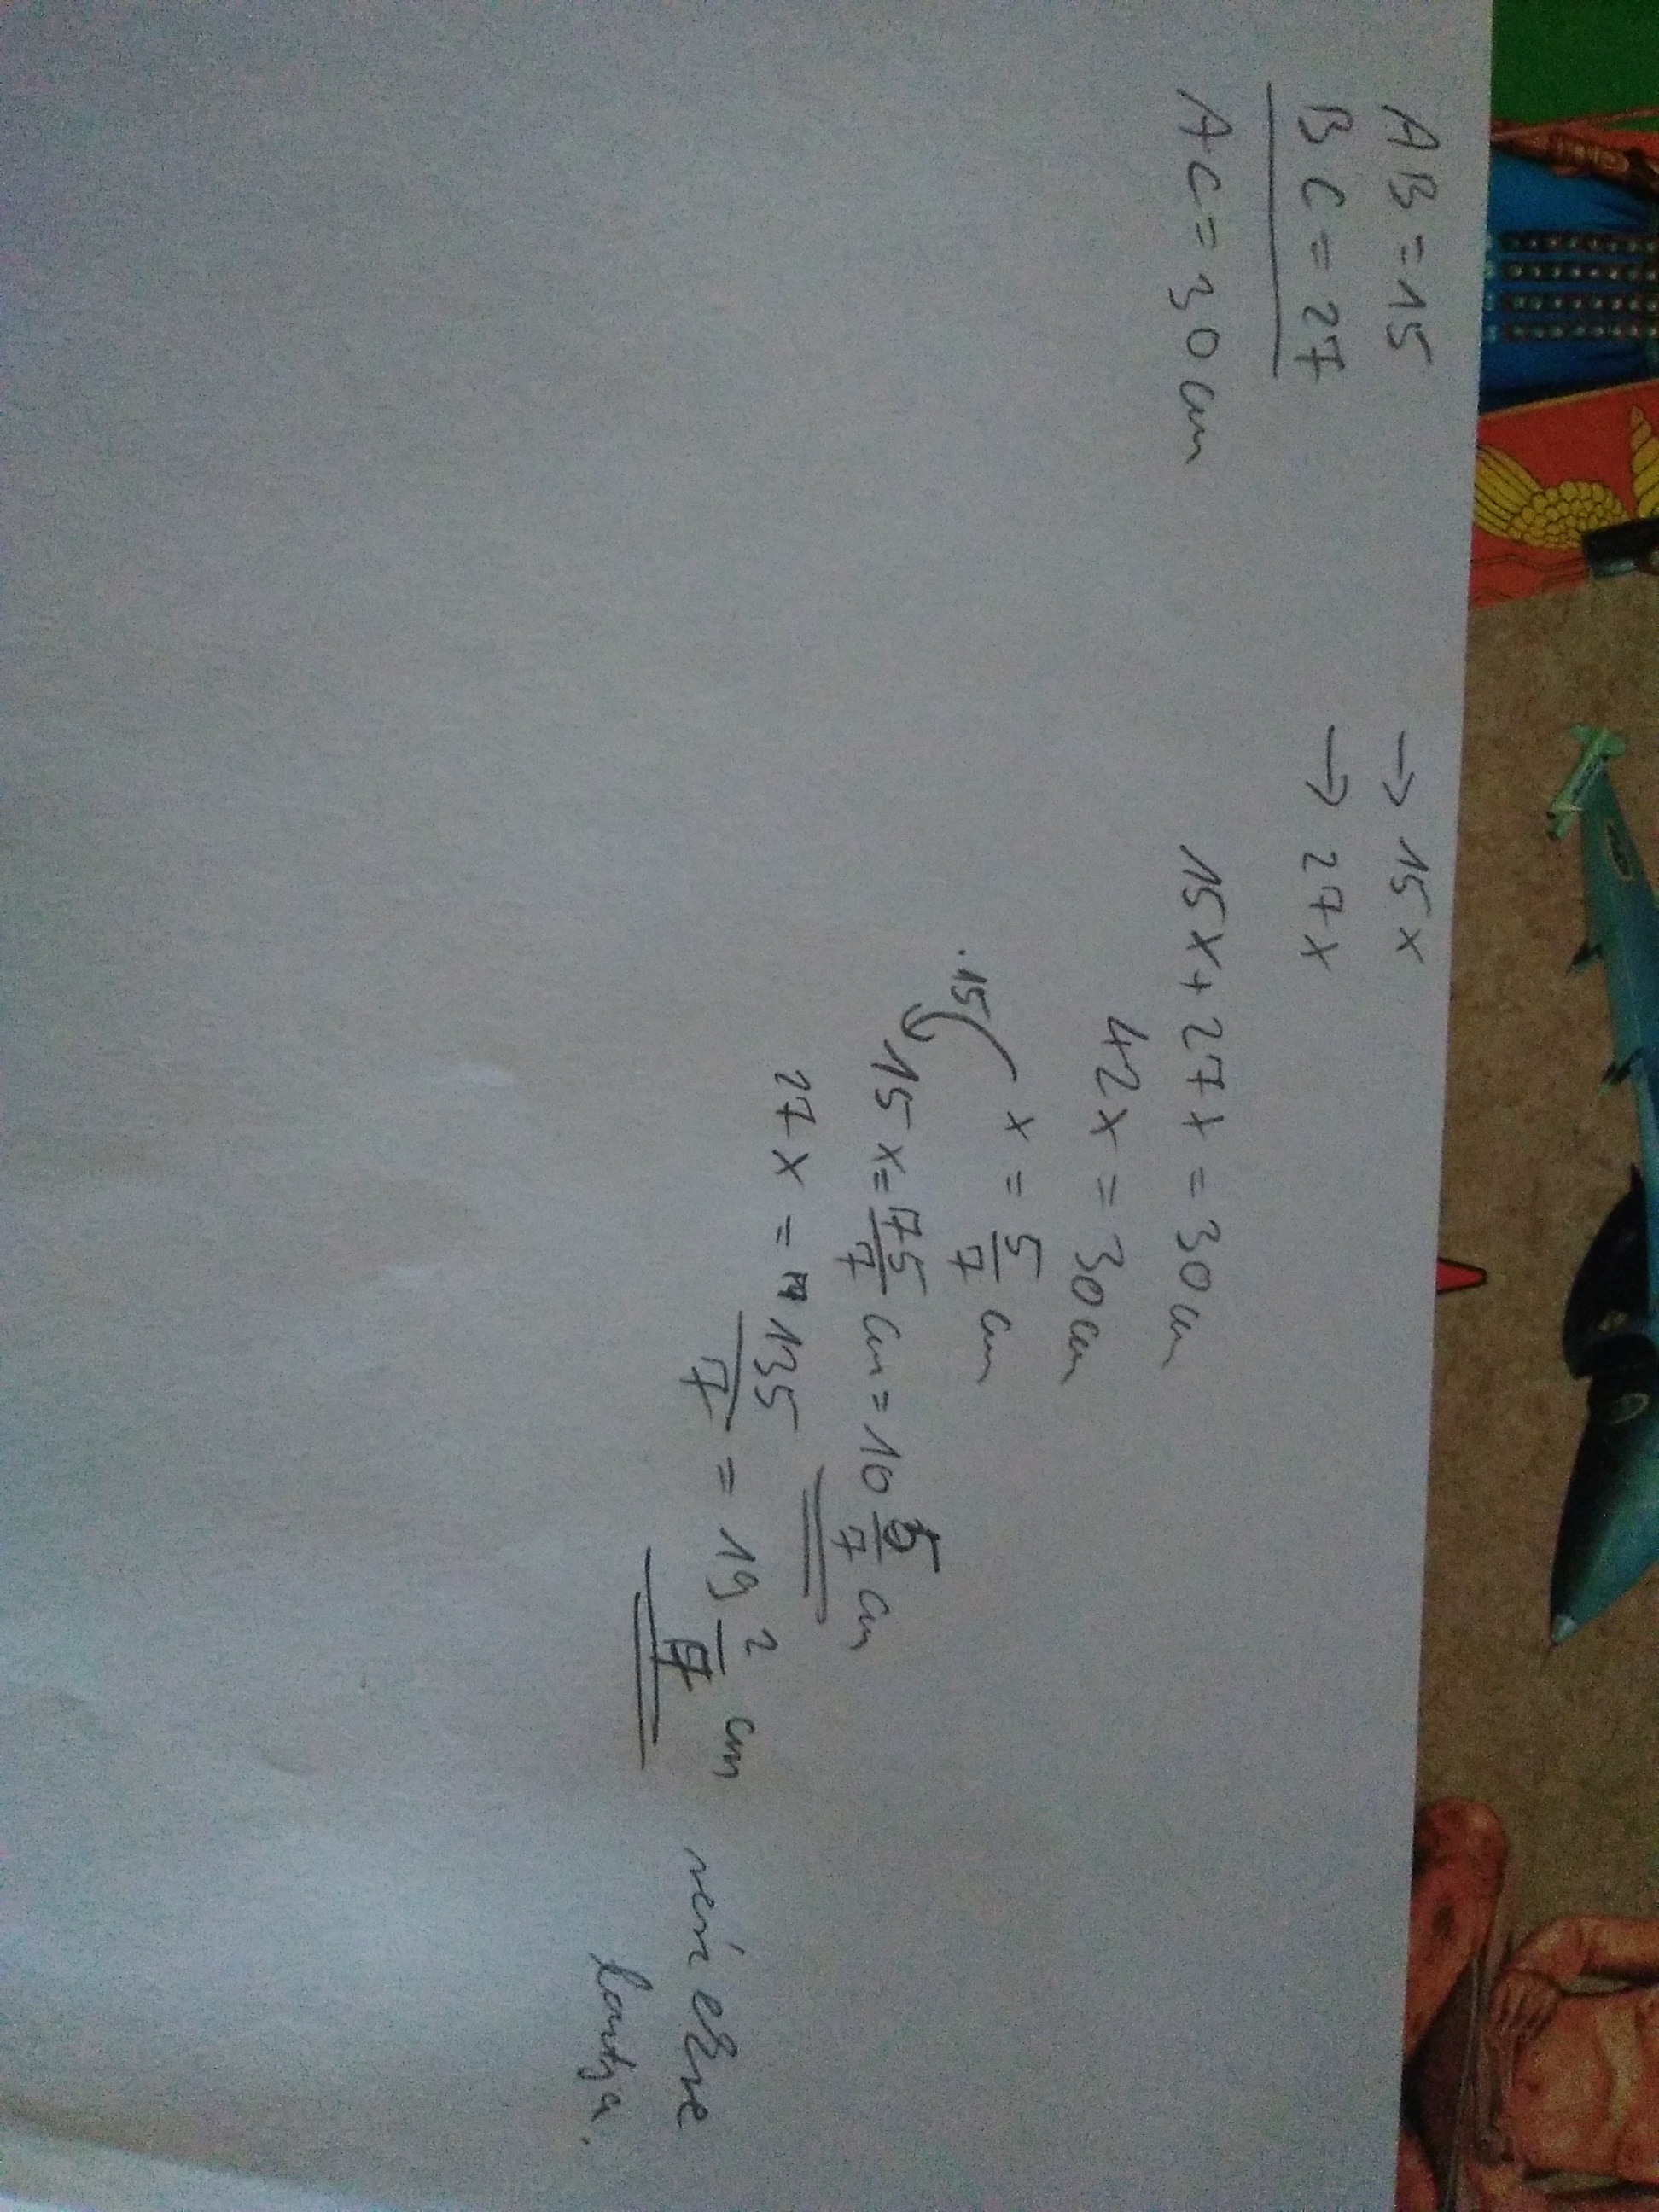 AB = 15 → 15x
BC = 27 → 27x
AC = 30 cm 15x + 27x = 30 cm
42x = 30 cm
x = 5/7 cm
·15
15x = 75/7 cm = 10 5/7 cm
27x = 135/7 = 19 2/7 cm